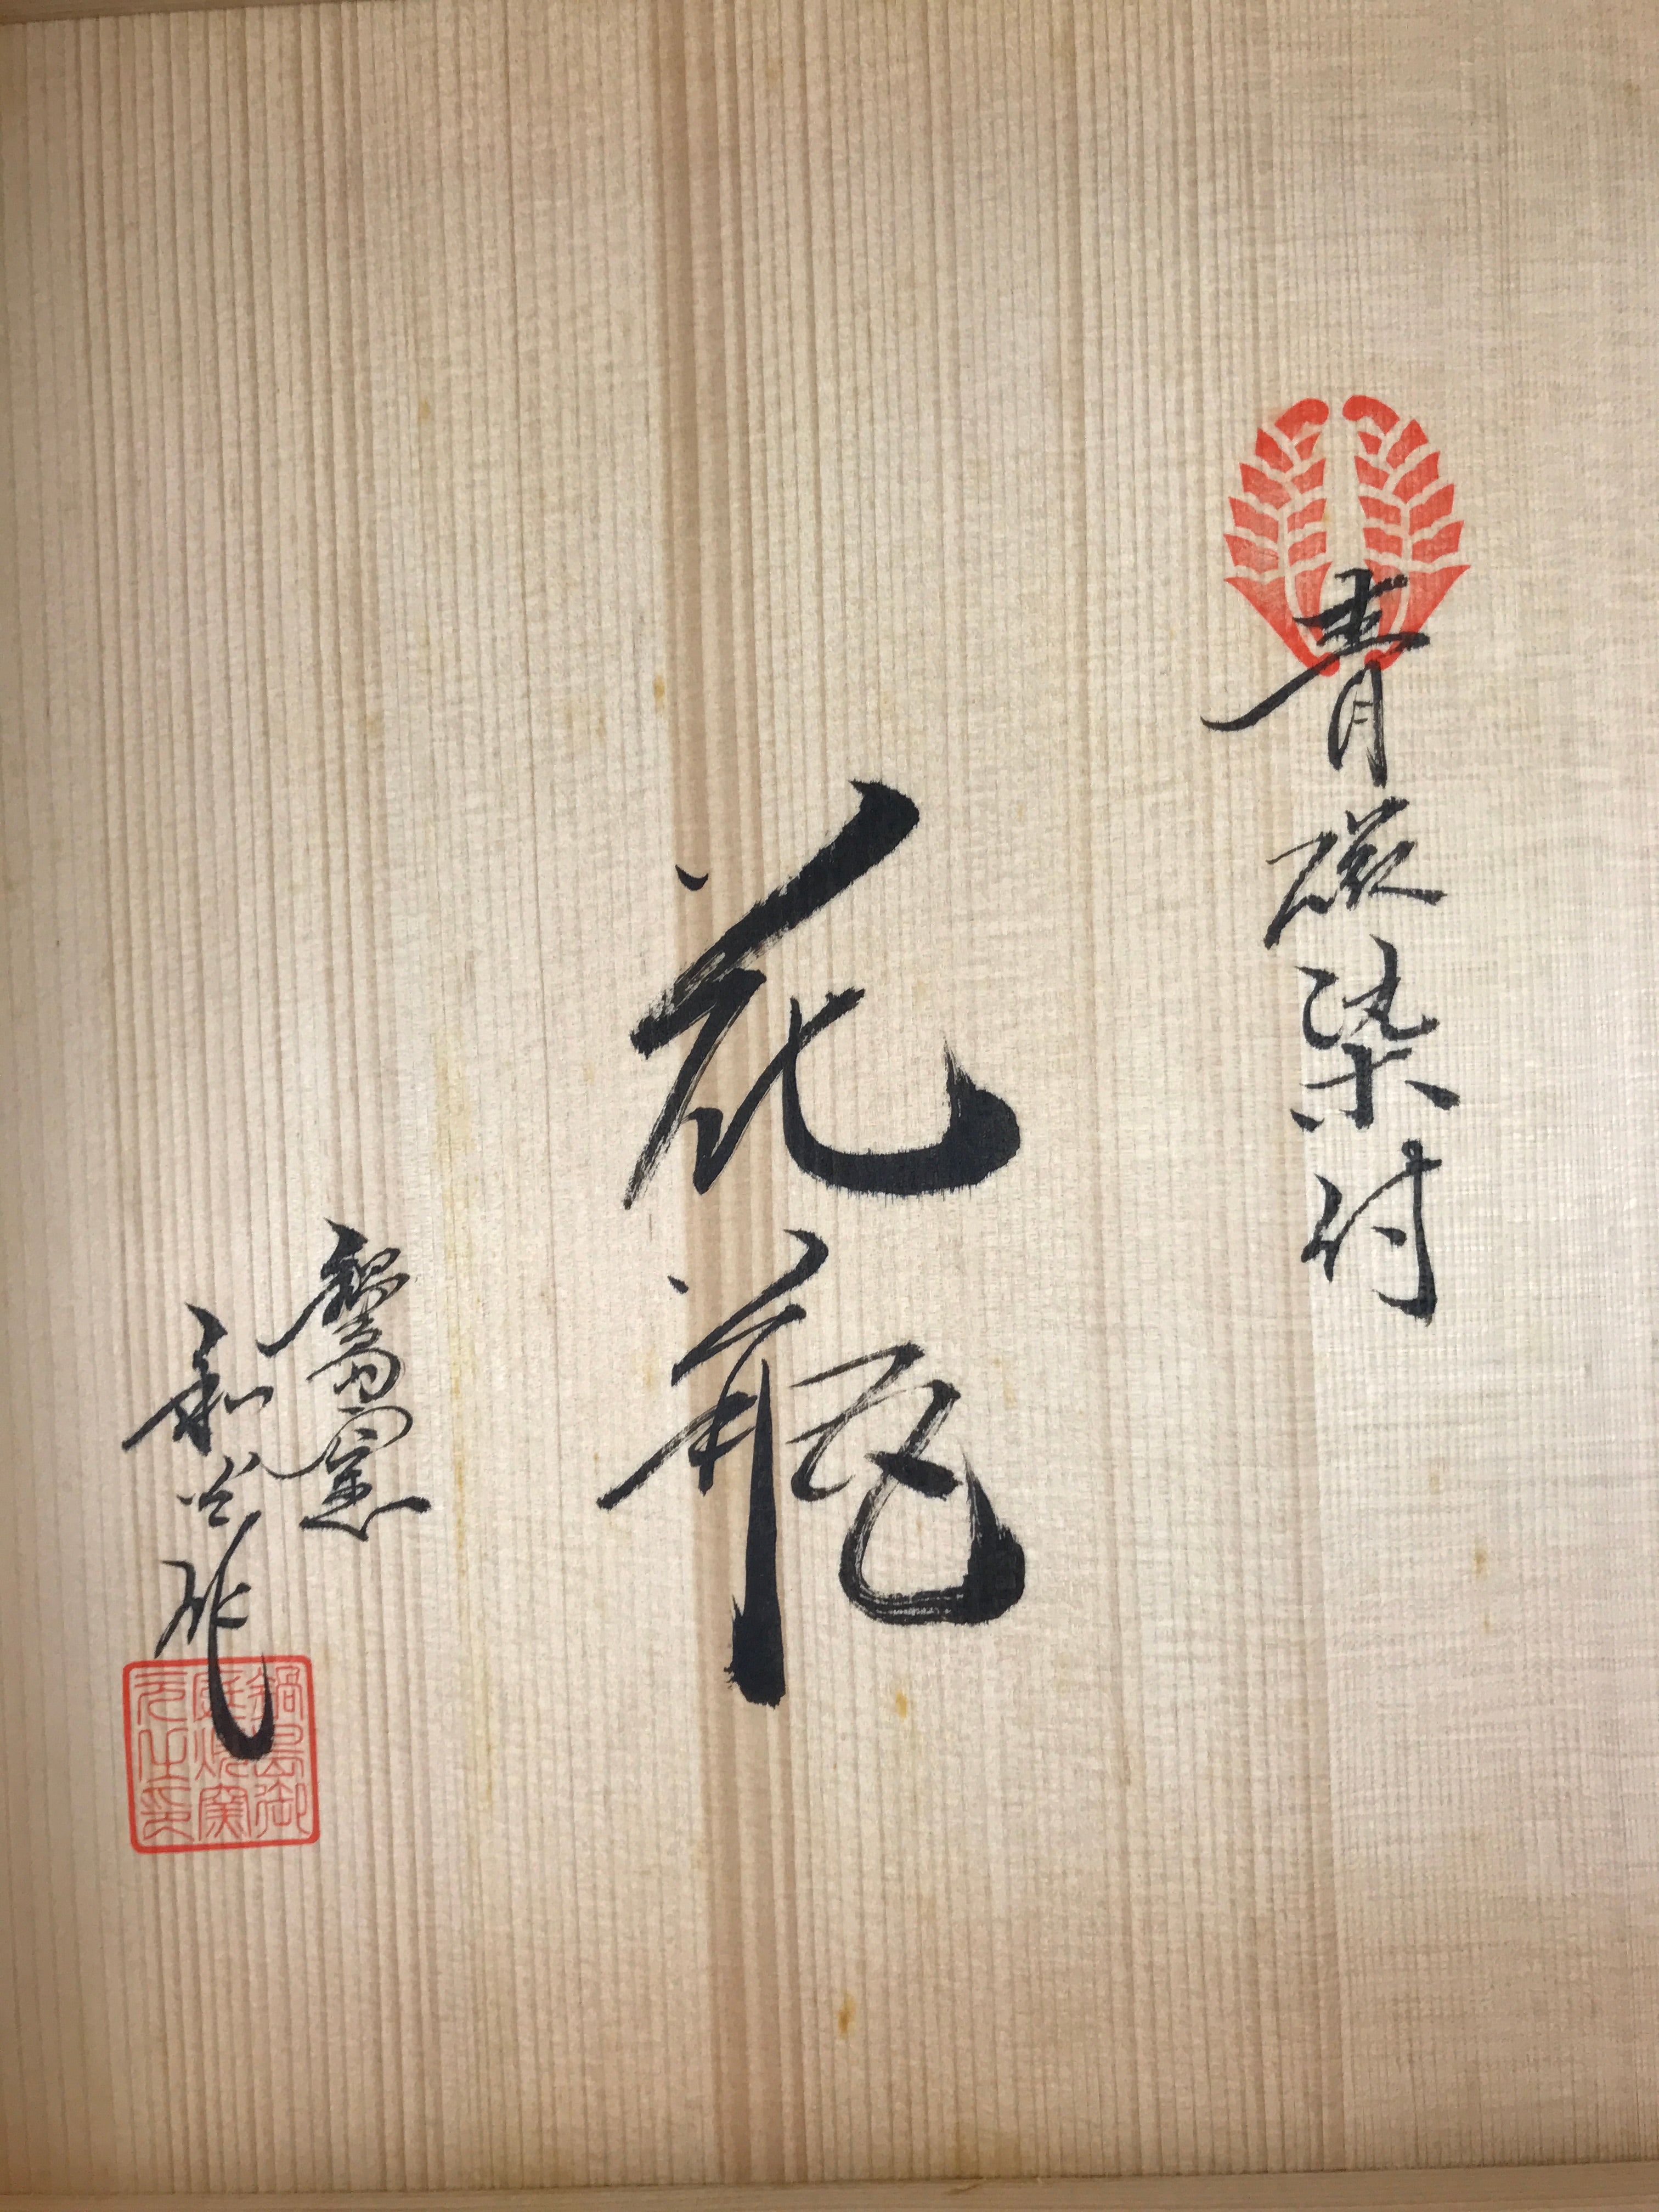 青磁染付
花瓶
窯
作
鍋島御
庭焼窯
元之印